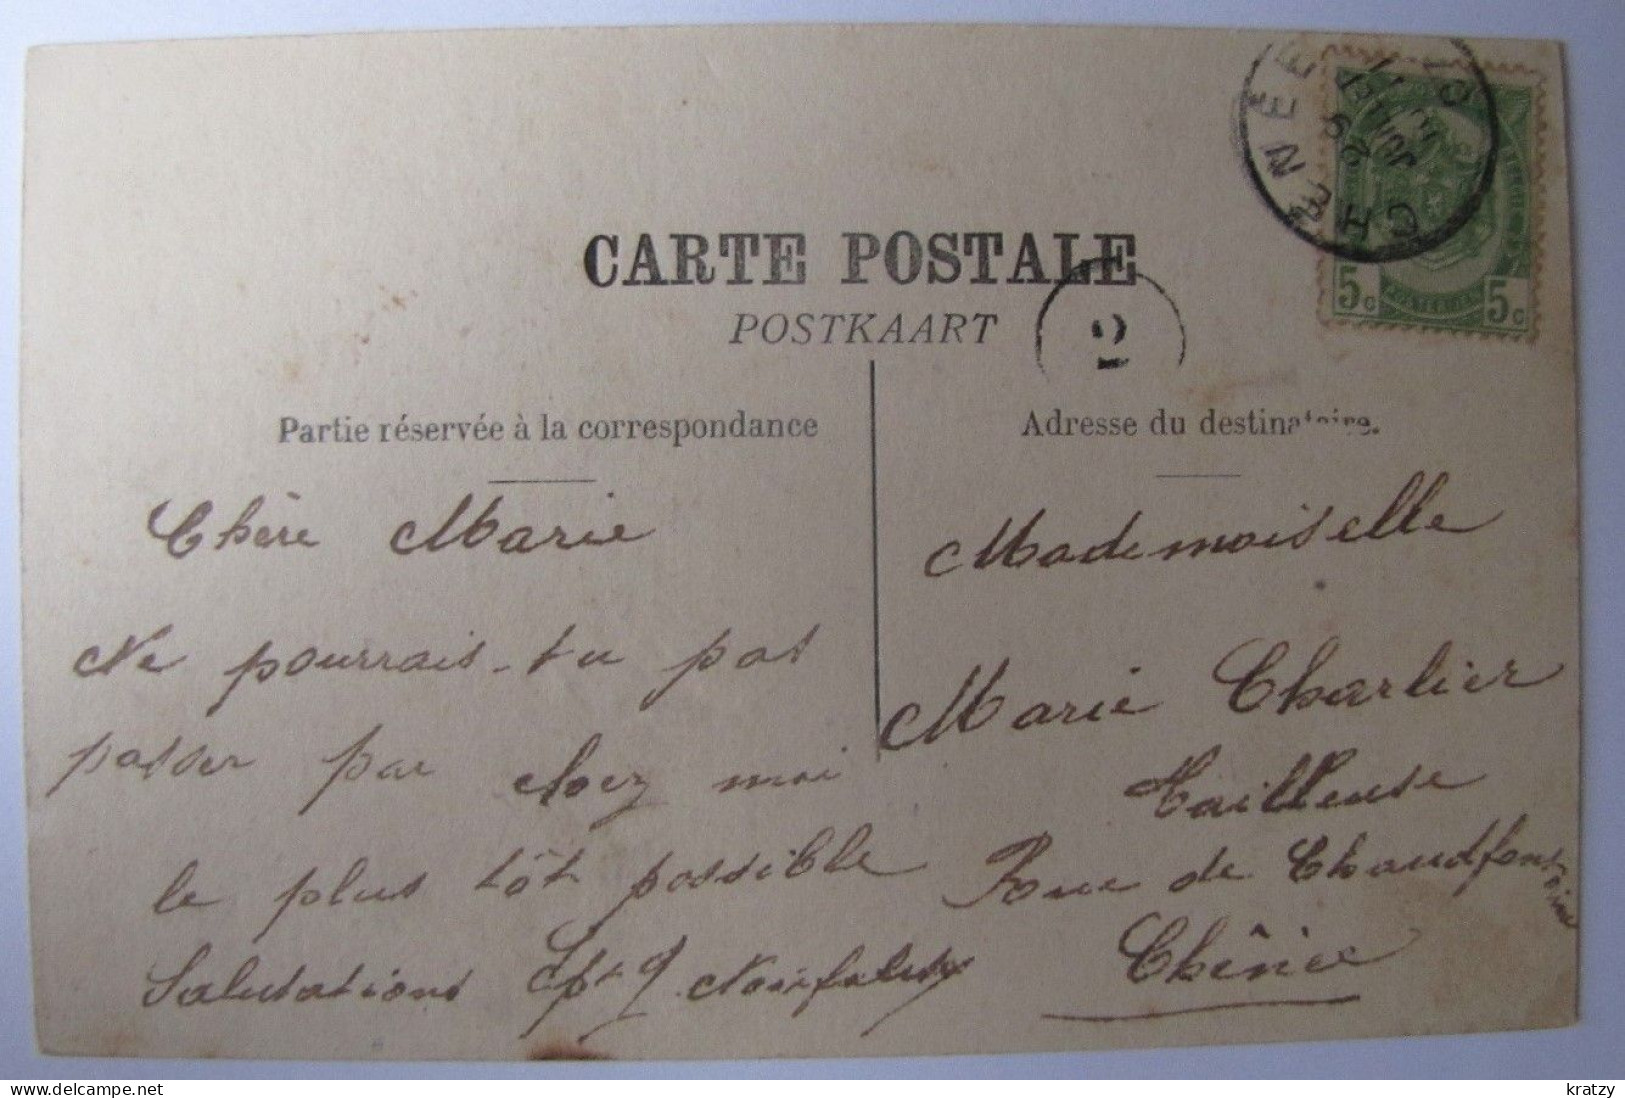 CARTE POSTALE
POSTKAART
2
CHÊNÉE
5c 5c
Partie réservée à la correspondance
Adresse du destinataire.
Chère Marie
Ne pourrais-tu pas
passer par chez moi
le plus tôt possible
Salutations
Mademoiselle
Marie Charlier
Tailleuse
Rue de Chaudfontaine
Chênée
delcampe.net
kratzy